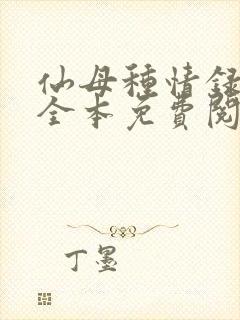 仙母種情録
全本免費閱
丁墨